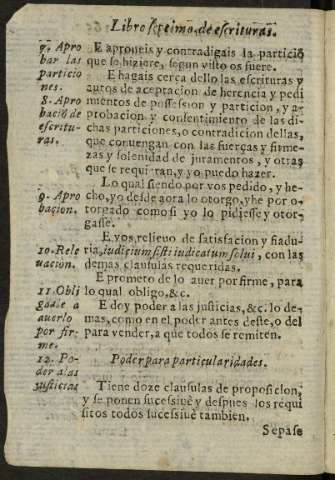 Libro septimo, de escrituras.
7. Apro
bar las
particio
nes.
8. Apro
bació de
escritu-
ras.
E aproueis y contradigais la partició
que se hiziere, segun visto os fuere.
E hagais cerca dello las escrituras y
autos de aceptacion de herencia y pedi
mientos de possession y particion, y a-
probacion y consentimiento de las di-
chas particiones, o contradicion dellas,
que conuengan con las fuerças y firme-
zas y solenidad de juramentos, y otras
que se requieran, y yo puedo hazer.
9. Apro
bacion.
Lo qual siendo por vos pedido, y he-
cho, yo desde aora lo otorgo, y he por o-
torgado como si yo lo pidiesse y otor-
gasse.
10. Rele
uacion.
E vos relieuo de satisfacion y fiadu-
ria, iudicium sisti iudicatum solui, con las
demas clausulas requeridas.
11. Obli
gase a
auerlo
por fir-
me.
E prometo de lo auer por firme, para
lo qual obligo, &c.
12. Po-
der a las
justicias
E doy poder a las justicias, &c. lo de-
mas, como en el poder antes deste, o del
para vender, a que todos se remiten.
Poder para particularidades.
Tiene doze clausulas de proposicion,
y se ponen sucessiuè y despues los requi
sitos todos sucessiuè tambien.
Sepase